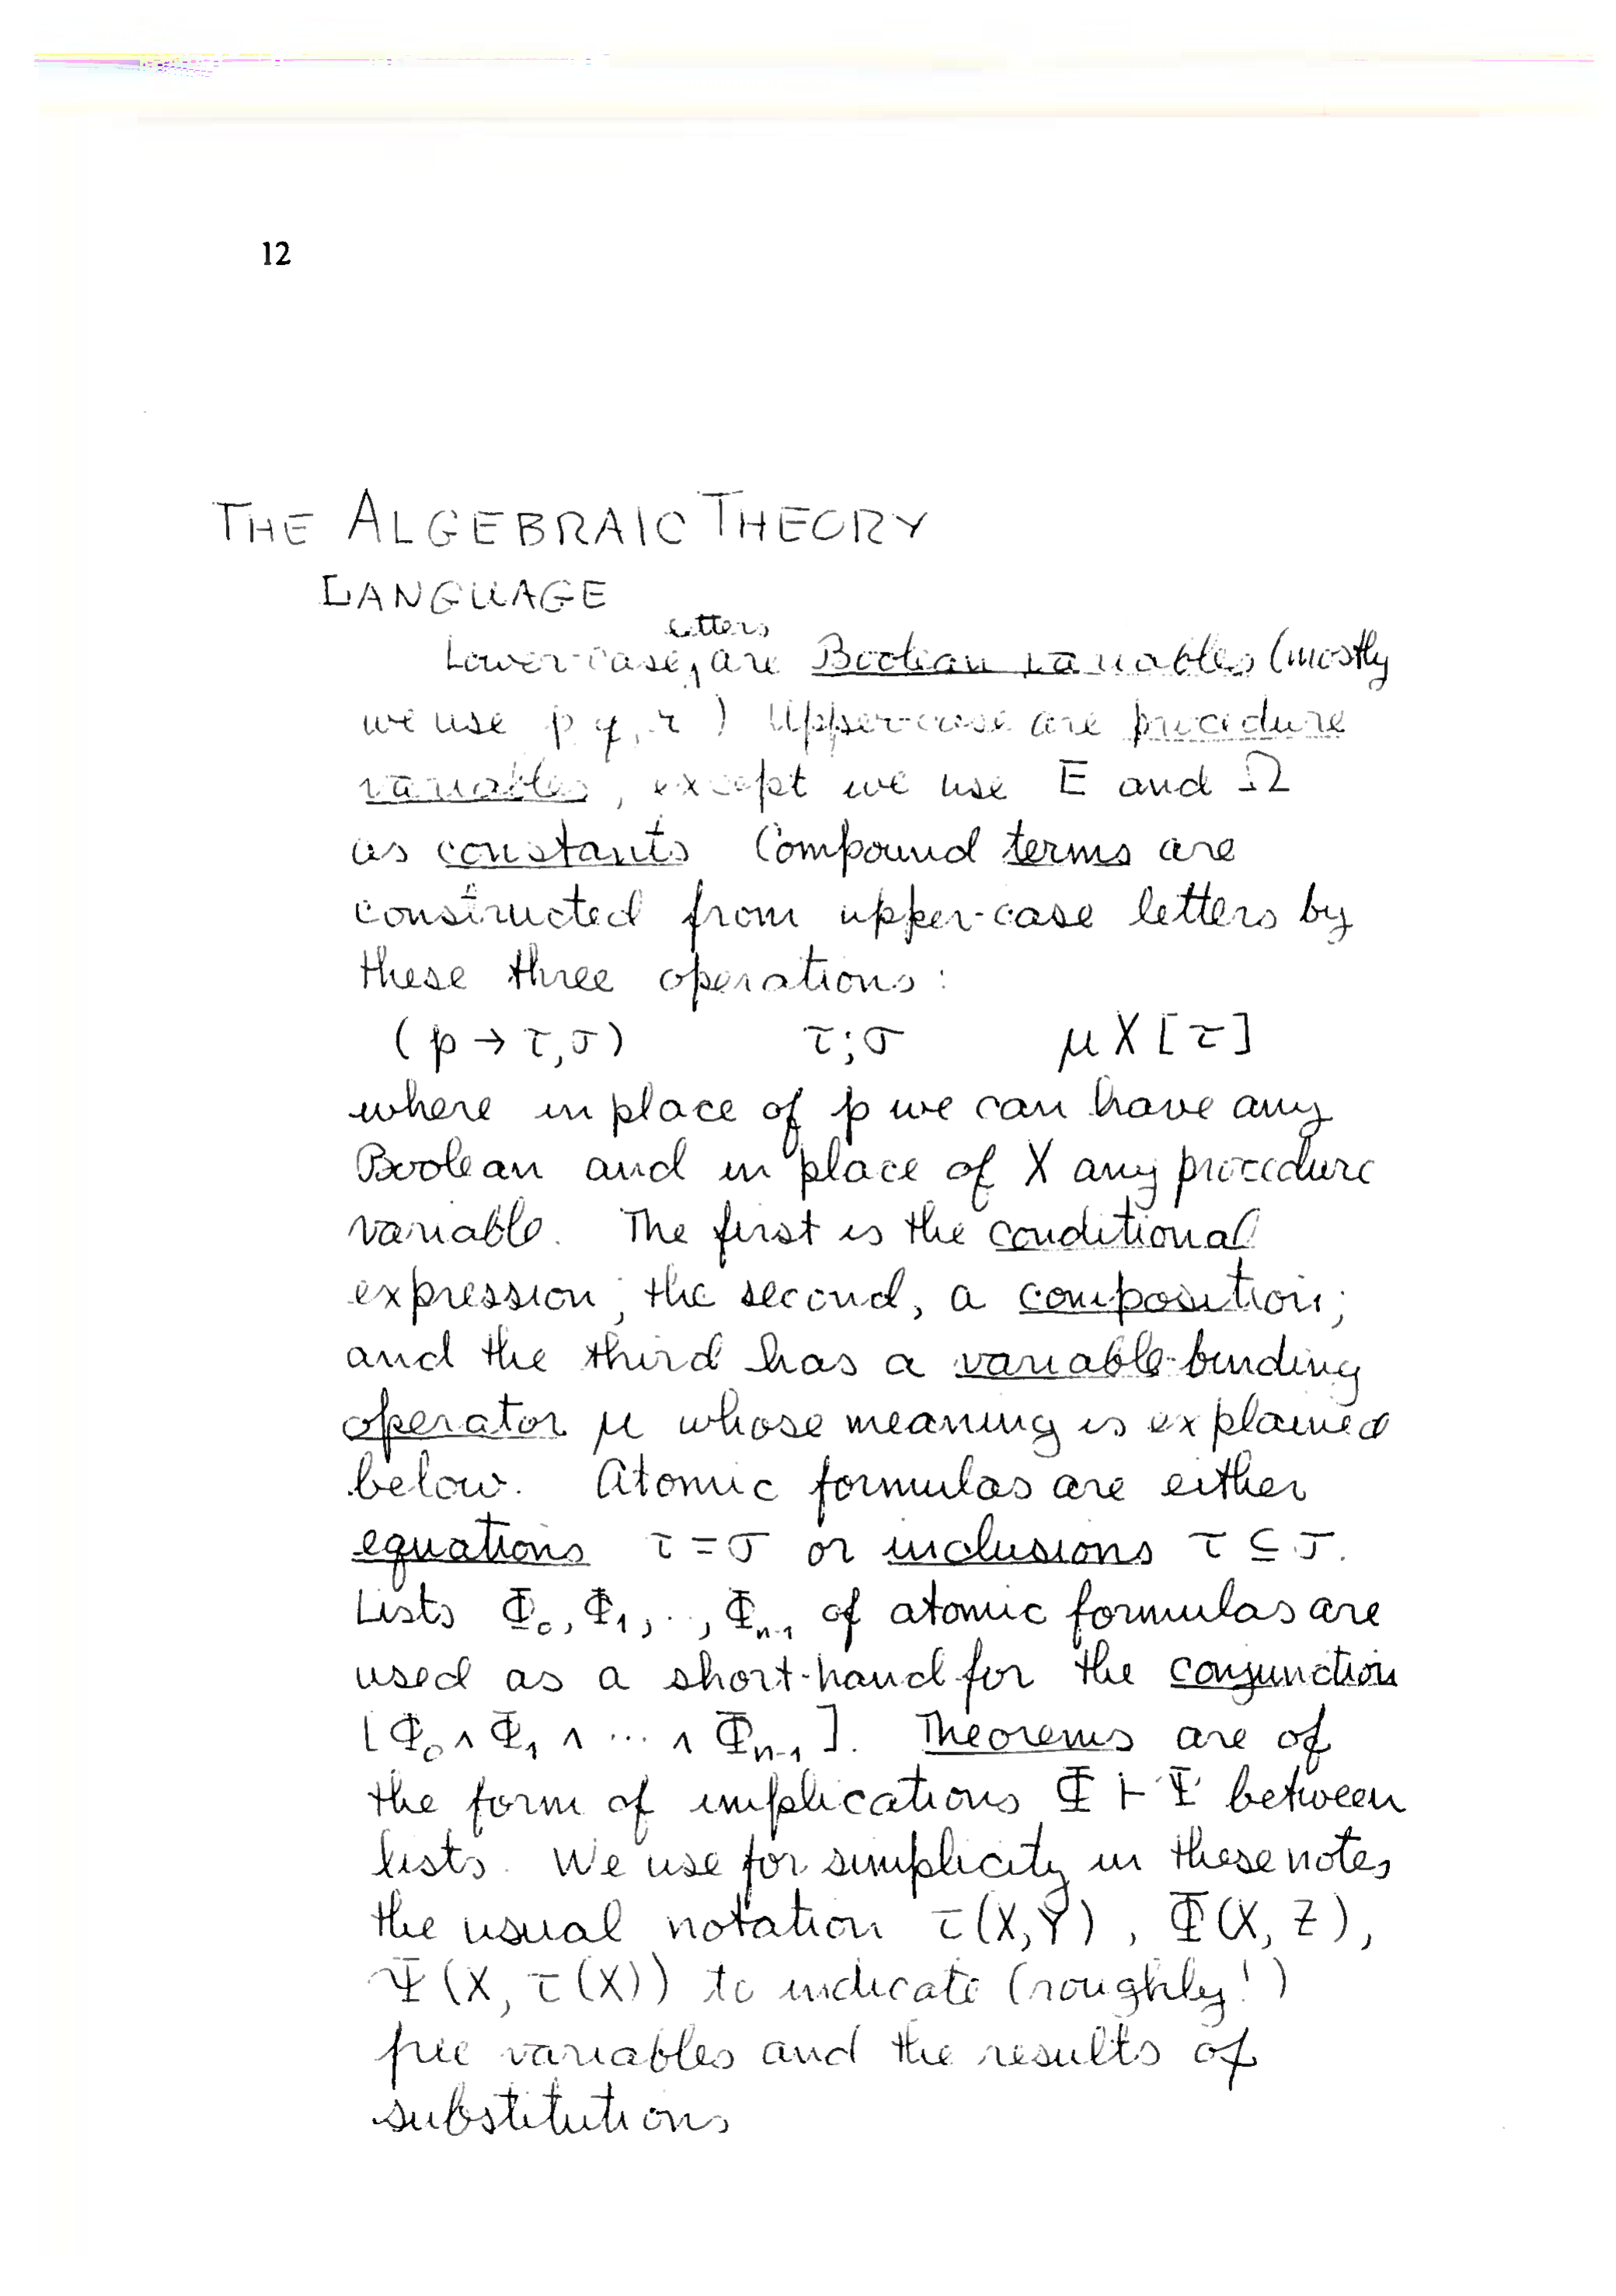 12
THE ALGEBRAIC THEORY
LANGUAGE
letters
Lower-case, are Boolean variables (mostly
we use p q, r ) Upper-case are procedure
variables, except we use E and Ω
as constants Compound terms are
constructed from upper-case letters by
these three operations:
(p → τ, σ) τ;σ μX[τ]
where in place of p we can have any
Boolean and in place of X any procedure
variable. The first is the conditional
expression; the second, a composition;
and the third has a variable-binding
operator μ whose meaning is explained
below. Atomic formulas are either
equations τ = σ or inclusions τ ⊆ σ.
Lists Φ₀, Φ₁, .., Φₙ₋₁ of atomic formulas are
used as a short-hand for the conjunction
[Φ₀ ∧ Φ₁ ∧ ··· ∧ Φₙ₋₁]. Theorems are of
the form of implications Φ ⊢ Ψ between
lists. We use for simplicity in these notes
the usual notation τ(X,Y), Φ(X, Z),
Ψ(X, τ(X)) to indicate (roughly!)
free variables and the results of
substitutions